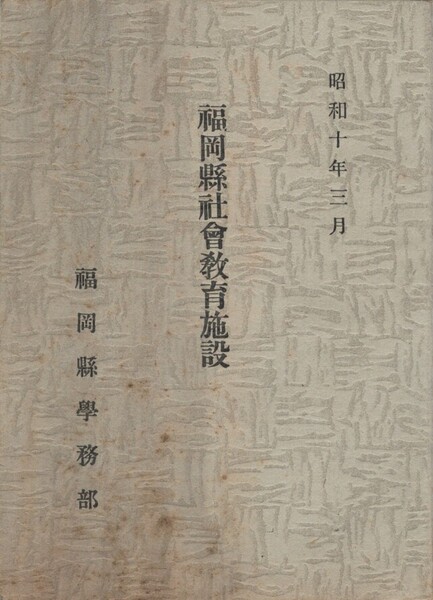 昭和十年三月
福岡縣社會敎育施設
福岡縣學務部